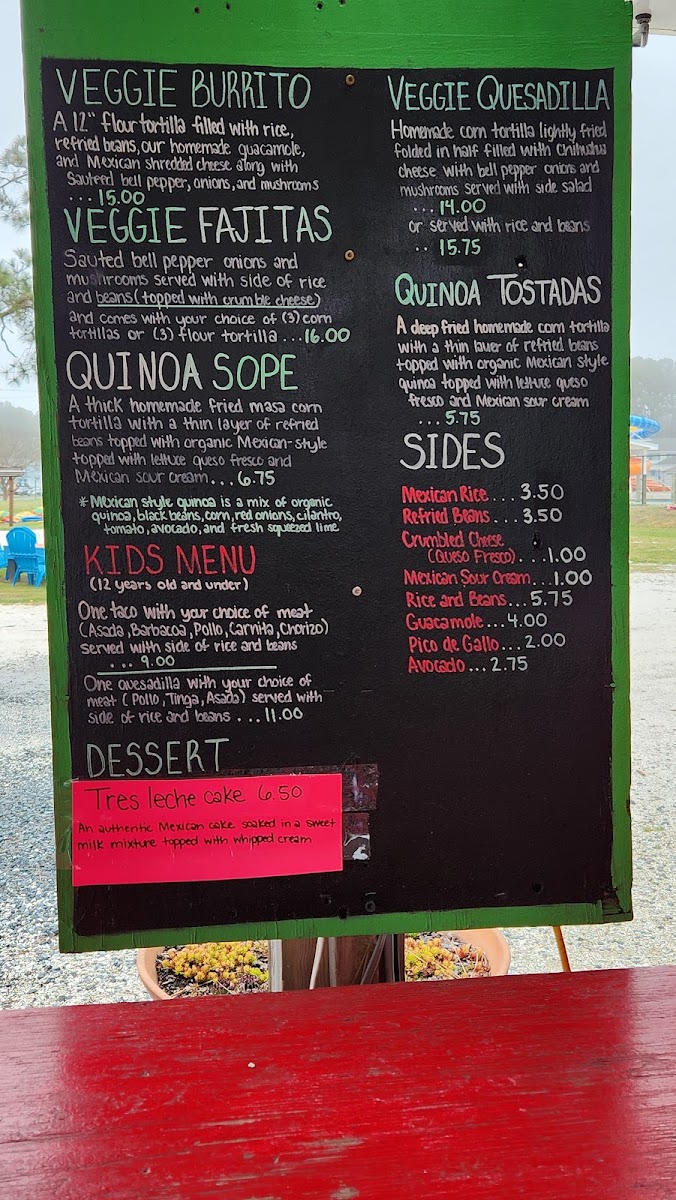 VEGGIE BURRITO
A 12" flour tortilla filled with rice,
refried beans, our homemade guacamole,
and Mexican shredded cheese along with
Sauteed bell pepper, onions, and mushrooms
... 15.00
VEGGIE FAJITAS
Sauted bell pepper onions and
mushrooms served with side of rice
and beans (topped with crumble cheese)
and comes with your choice of (3) corn
tortillas or (3) flour tortilla ... 16.00
QUINOA SOPE
A thick homemade fried masa corn
tortilla with a thin layer of refried
beans topped with organic Mexican-style
topped with lettuce queso fresco and
Mexican sour cream... 6.75
*Mexican style quinoa is a mix of organic
quinoa, black beans, corn, red onions, cilantro,
tomato, avocado, and fresh squeezed lime
KIDS MENU
(12 years old and under)
One taco with your choice of meat
(Asada, Barbacoa, Pollo, Carnita, Chorizo)
served with side of rice and beans
... 9.00
One quesadilla with your choice of
meat (Pollo, Tinga, Asada) served with
side of rice and beans ... 11.00
DESSERT
Tres leche cake 6.50
An authentic Mexican cake soaked in a sweet
milk mixture topped with whipped cream
VEGGIE QUESADILLA
Homemade corn tortilla lightly fried
folded in half filled with Chihuahua
cheese with bell pepper onions and
mushrooms served with side salad
... 14.00
or served with rice and beans
.. 15.75
QUINOA TOSTADAS
A deep fried homemade corn tortilla
with a thin layer of refried beans
topped with organic Mexican style
quinoa topped with lettuce queso
fresco and Mexican sour cream
... 5.75
SIDES
Mexican Rice .... 3.50
Refried Beans ... 3.50
Crumbled Cheese
(Queso Fresco) ...1.00
Mexican Sour Cream...1.00
Rice and Beans... 5.75
Guacamole ... 4.00
Pico de Gallo... 2.00
Avocado ... 2.75